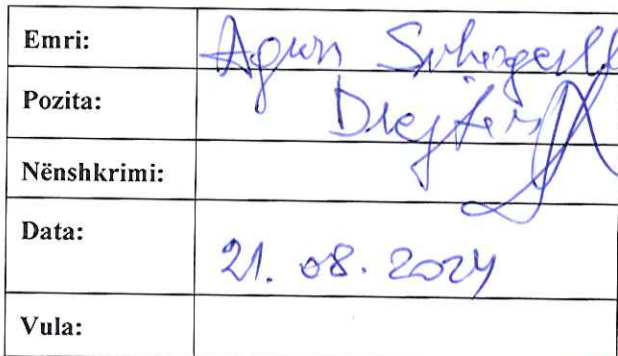 Emri: Agron
Pozita: Drejtor
Nënshkrimi:
Data: 21.08.2024
Vula: